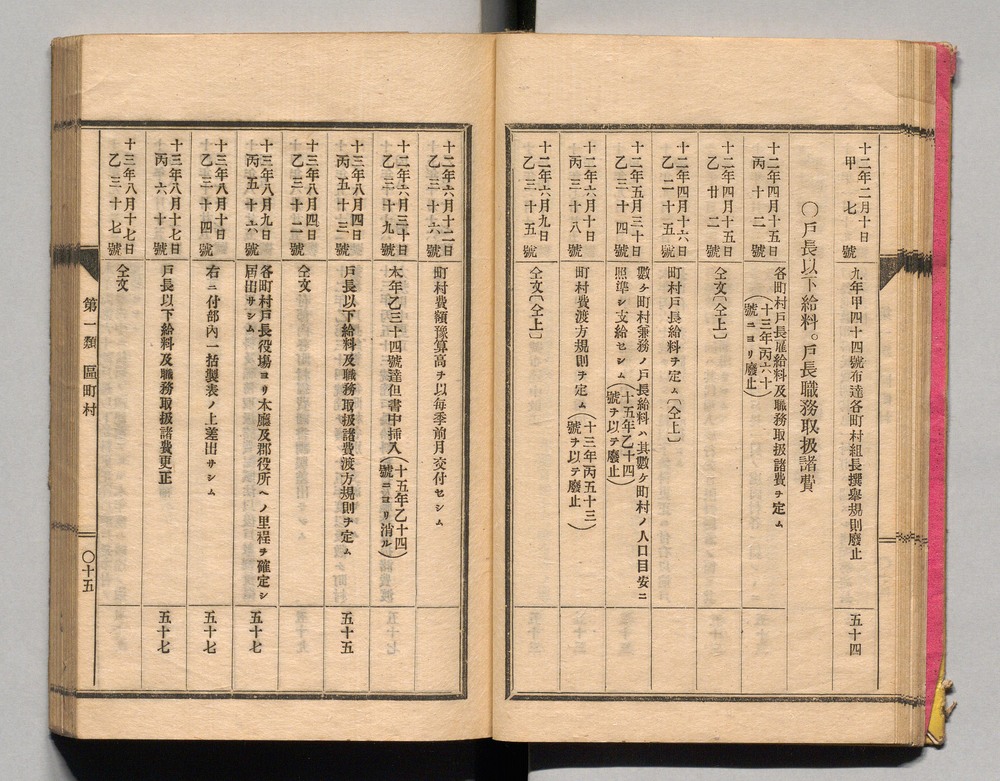 十二年二月十日
甲七號
九年甲四十四號布達各町村組長撰擧規則廢止
五十四
〇戶長以下給料。戶長職務取扱諸費
十二年四月十五日
丙十二號
各町村戶長雇給料及職務取扱諸費ヲ定ム
(十三年丙六十
號ニヨリ廢止)
十二年四月十五日
乙廿二號
仝文〔仝上〕
十二年四月十六日
乙二十五號
町村戶長給料ヲ定ム〔仝上〕
十二年五月三十日
乙三十四號
數ケ町村兼務ノ戶長給料ハ其數ケ町村ノ人口目安ニ
照準シ支給セシム
(十五年乙十四
號ヲ以テ廢止)
十二年六月十日
丙三十八號
町村費渡方規則ヲ定ム
(十三年丙五十三
號ヲ以テ廢止)
十二年六月九日
乙三十五號
仝文〔仝上〕
十二年六月十二日
乙三十六號
町村費額豫算高ヲ以每季前月交付セシム
十二年六月三十日
乙三十九號
本年乙三十四號達但書中挿入
(十五年乙十四
號ニヨリ消ル)
十三年八月四日
丙五十三號
戶長以下給料及職務取扱諸費渡方規則ヲ定ム
五十五
十三年八月四日
乙三十二號
仝文
十三年八月九日
丙五十六號
各町村戶長役塲ヨリ本廳及郡役所ヘノ里程ヲ確定シ
屆出サシム
五十七
十三年八月十日
乙三十四號
右ニ付部內一括製表ノ上差出サシム
五十七
十三年八月十七日
丙六十號
戶長以下給料及職務取扱諸費更正
五十七
十三年八月十七日
乙三十七號
仝文
第一類 區町村
〇十五